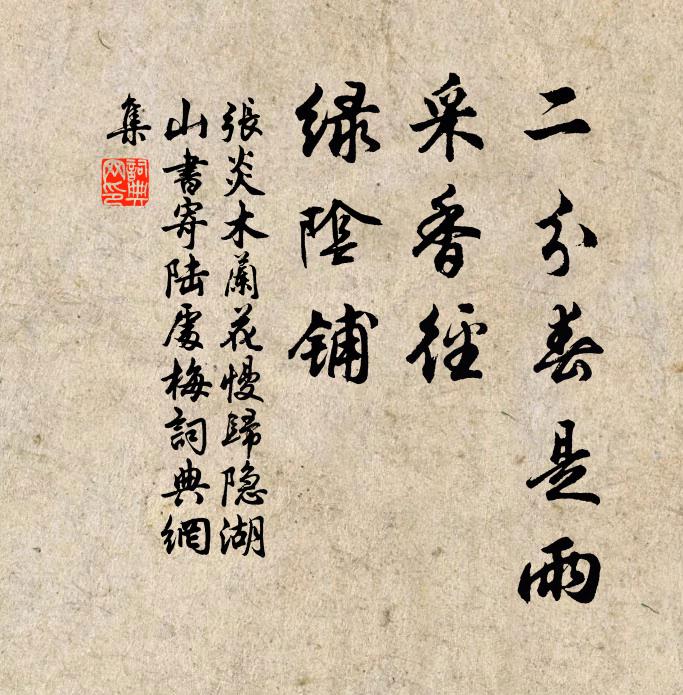 二分春是雨
采香徑
緑陰鋪
張炎木蘭花慢歸隐湖
山書寄陆處梅詞典網
集
詞典
网印